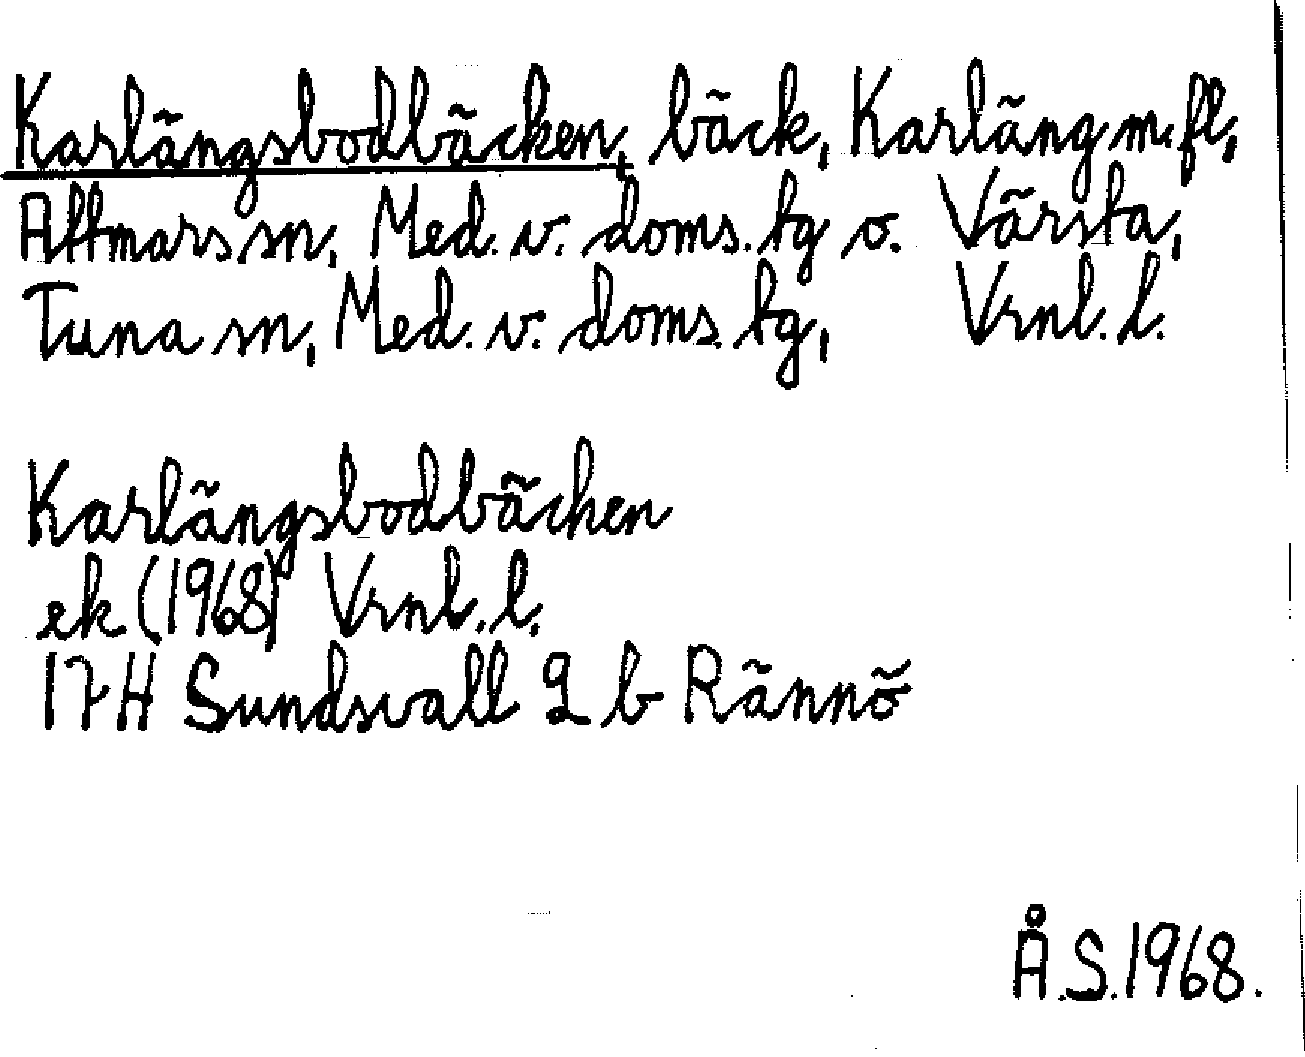 Karlängsbodbäcken, bäck, Karläng m. fl,
Attmars sn, Med. v. doms. tg o. Värsta,
Tuna sn, Med. v. doms. tg, Vrnl. l.
Karlängsbodbäcken
ek (1968) Vrnl. l.
17H Sundsvall 2 b Rännö
Å.S. 1968.